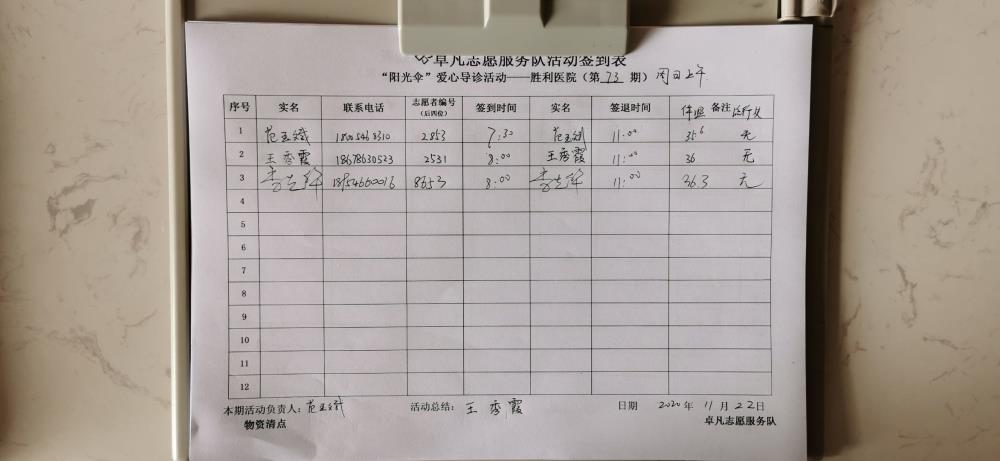 卓凡志愿服务队活动签到表
“阳光伞”爱心导诊活动——胜利医院(第 73 期) 周日上午
序号 实名 联系电话 志愿者编号(后四位) 签到时间 实名 签退时间 体温 备注
1 2853 7:30 11:00 35.6 无
2 王秀霞 18678630523 2531 8:00 王秀霞 11:00 36 无
3 18954660016 8653 8:00 11:00 36.3 无
4
5
6
7
8
9
10
11
12
本期活动负责人: 活动总结: 王秀霞 日期 2020年 11月 22日
物资清点 卓凡志愿服务队